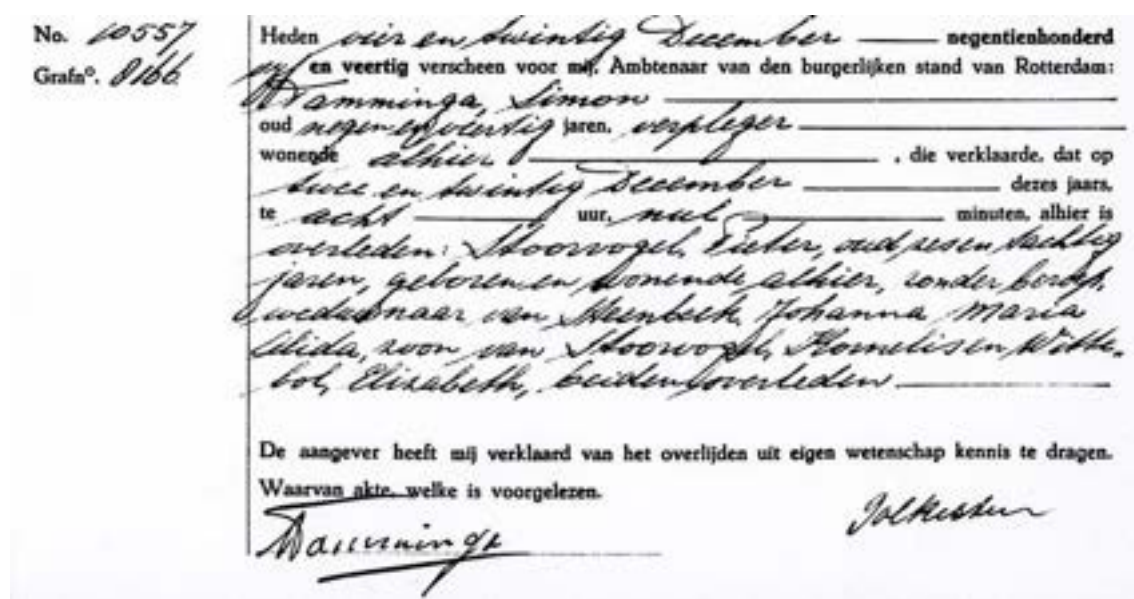 No. 10557
Grafnº. 8166
Heden vier en twintig December negentienhonderd
vijf en veertig verscheen voor mij, Ambtenaar van den burgerlijken stand van Rotterdam:
Tamminga, Simon
oud negen en veertig jaren, verpleger
wonende alhier , die verklaarde, dat op
twee en twintig December dezes jaars,
te acht uur, nul minuten, alhier is
overleden: Stoorvogel, Pieter, oud zes en tachtig
jaren, geboren en wonende alhier, zonder beroep,
weduwnaar van Steenbeek, Johanna Maria
Alida, zoon van Stoorvogel, Kornelis en Witte-
bol, Elizabeth, beiden overleden
De aangever heeft mij verklaard van het overlijden uit eigen wetenschap kennis te dragen.
Waarvan akte, welke is voorgelezen.
Tamminga